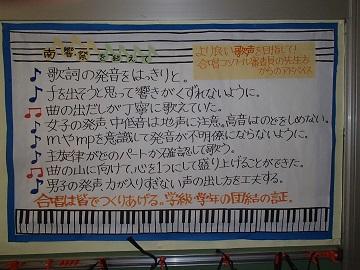 南響祭を終えて
より良い歌声を目指して!
合唱コンクール審査員の先生方
からのアドバイス
歌詞の発音をはっきりと。
fを出そうと思って響きがくずれないように。
曲の出だしが丁寧に歌えていた。
女子の発声 中低音は地声に注意。高音はのどをしめない。
mやmpを意識して発音が不明僚にならないように。
主旋律がどのパートか確認して歌う。
曲の山に向けて、心を1つにして盛り上げることができた。
男子の発声 力が入りすぎない声の出し方を工夫する。
合唱は皆でつくりあげる。学級・学年の団結の証。